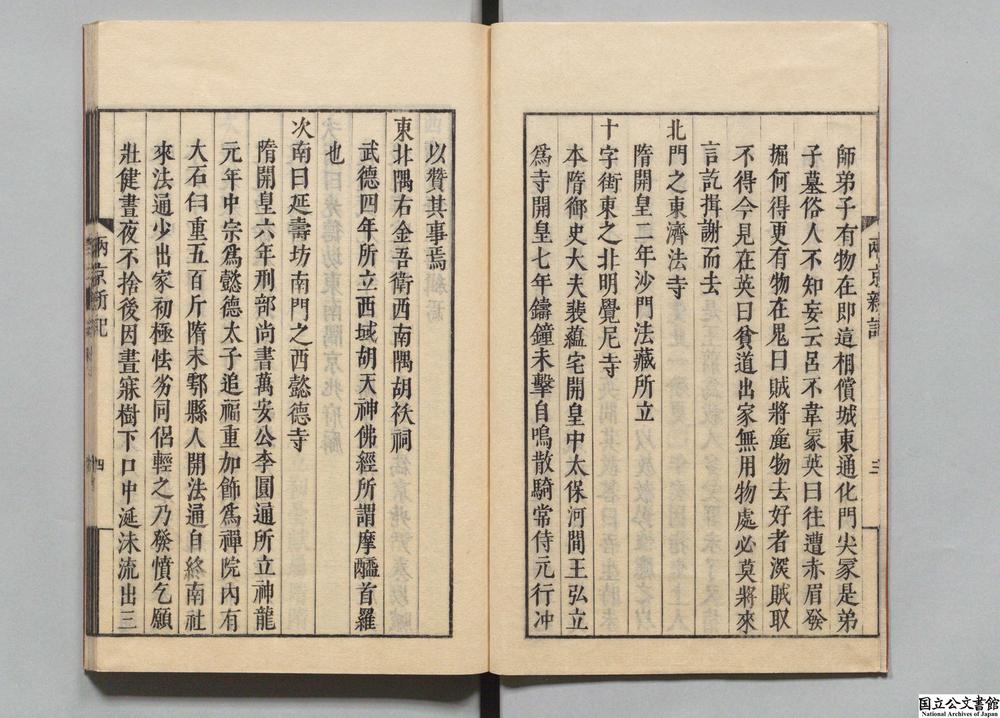 師弟子有物在即遣相償城東通化門尖冢是弟
子墓俗人不知妄云呂不韋冢英曰往遭赤眉發
掘何得更有物在鬼曰賊將麁物去好者深賊取
不得今見在英曰貧道出家無用物處必莫將來
言訖揖謝而去
北門之東濟法寺
隋開皇二年沙門法藏所立
十字街東之北明覺尼寺
本隋御史大夫裴蘊宅開皇中太保河間王弘立
爲寺開皇七年鑄鐘未擊自鳴散騎常侍元行冲
兩京新記
三
以贊其事焉
東北隅右金吾衛西南隅胡祆祠
武德四年所立西域胡天神佛經所謂摩醯首羅
也
次南曰延壽坊南門之西懿德寺
隋開皇六年刑部尚書萬安公李圓通所立神龍
元年中宗爲懿德太子追福重加飾爲禪院內有
大石臼重五百斤隋末鄠縣人開法通自終南社
來法通少出家初極怯劣同侶輕之乃發憤乞願
壯健晝夜不捨後因晝寐樹下口中涎沫流出三
兩京新記
四
国立公文書館
National Archives of Japan